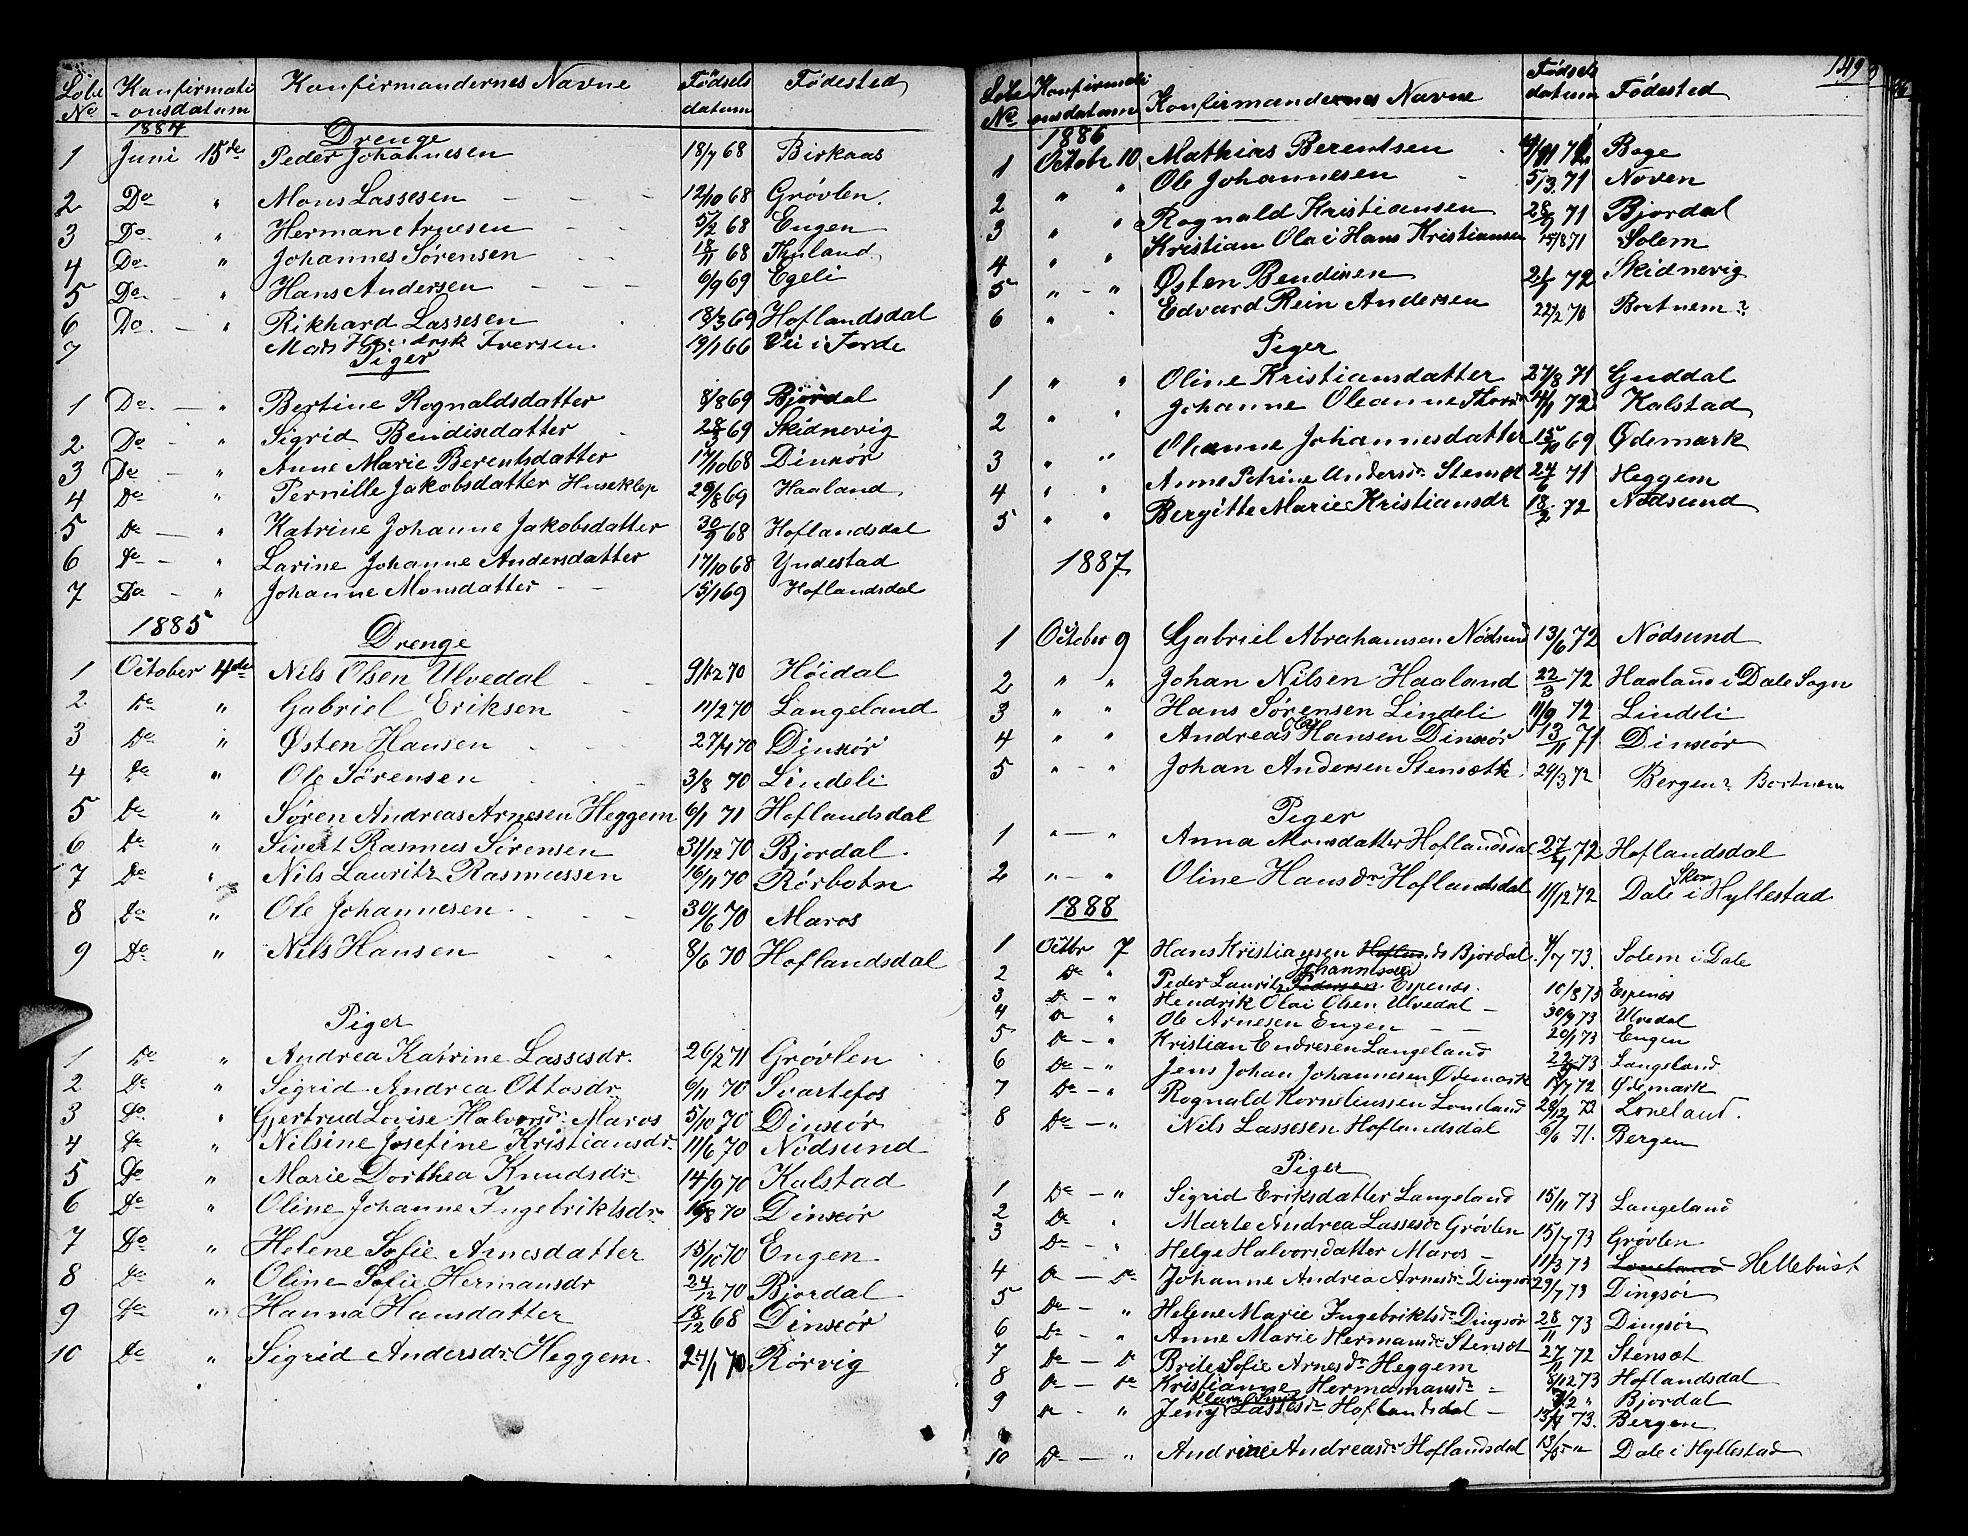 Löbe No Konfirmationsdatum Konfirmandernes Navne Födsels datum Födested
1884 Drenge
1 Juni 15de Peder Johannesen 18/7 68 Birkaas
2 Do " Mons Lassesen 12/10 68 Grövlen
3 Do " Herman Arnesen 5/2 68 Engen
4 Do " Johannes Sörensen 18/11 68
5 Do " Hans Andersen 6/9 69 Egeli
6 Do " Rikhard Lassesen 18/3 69 Hoflandsdal
7 Mads Iversen 19/1 66
Piger
1 Do " Bertine Rognaldsdatter 8/8 69 Bjordal
2 Do " Sigrid Bendixdatter 28/3 69 Skidnevig
3 Do " Anne Marie Berentsdatter 17/10 68 Dinsör
4 Do " Pernille Jakobsdatter Huseklep 29/8 69 Haaland
5 Do " Katrine Johanne Jakobsdatter 30/9 68 Hoflandsdal
6 Do " Larine Johanne Andersdatter 17/10 68 Yndestad
7 Do " Johanne Monsdatter 15/1 69 Hoflandsdal
1885 Drenge
1 October 4de Nils Olsen Ulvedal 9/12 70 Höidal
2 Do " Gabriel Eriksen 11/2 70 Langeland
3 Do " Østen Hansen 27/4 70 Dinsör
4 Do " Ole Sörensen 3/8 70 Lindeli
5 Do " Sören Andreas Arnesen Heggem 6/1 71 Hoflandsdal
6 Do " Sivert Rasmus Sörensen 31/12 70 Bjordal
7 Do " Nils Lauritz Rasmussen 16/11 70 Rörbotn
8 Do " Ole Johannesen 30/6 70 Maros
9 Do " Nils Hansen 8/6 70 Hoflandsdal
Piger
1 Do " Andrea Katrine Lassesdr. 26/2 71 Grövlen
2 Do " Sigrid Andrea Ottosdr. 6/11 70 Svartefos
3 Do " Gjertrud Lovise Halvorsdr Maros 5/10 70 Dinsör
4 Do " Nilsine Josefine Kristiansdr. 11/6 70 Nödsund
5 Do " Marie Dorthea Knudsdr 14/9 70 Kalstad
6 Do " Oline Johanne Ingebriktsdr 16/8 70 Dinsör
7 Do " Helene Sofie Arnesdatter 15/10 70 Engen
8 Do " Oline Sofie Hermansdr 24/12 70 Bjordal
9 Do " Hanna Hansdatter 18/12 68 Dinsör
10 Do " Sigrid Andersdr Heggem 24/1 70 Rörvig
149
Löbe No Konfirmationsdatum Konfirmandernes Navne Födsels datum Födested
1886
1 Octobr 10 Mathias Berentsen Bøge
2 " " Ole Johannesen 5/3 71 Noven
3 " " Rognald Kristiansen 28/9 71 Bjordal
4 " " Kristian Olai Hans Kristiansen 15/8 71 Solem
5 " " Østen Bendixen 72 Skidnevig
6 " " Edvard Rein Andersen 22/2 70 Bortnem?
Piger
1 " " Oline Kristiansdatter 27/8 71 Guddal
2 " " Johanne Oleanne 72 Kalstad
3 " " Oleanne Johannesdatter 15/10 69 Ødemark
4 " " Anne Petrine Andersdr Stensæt 24/6 71 Heggem
5 " " Bergitte Marie Kristiansdr 18/2 72 Nödsund
1887
1 October 9 Gabriel Abrahamsen Nödsund 13/6 72 Nödsund
2 " " Johan Nilsen Haaland 22/3 72 Haaland i Dale Sogn
3 " " Hans Sörensen Lindeli 11/9 72 Lindeli
4 " " Andreas Hansen Dinsör 13/11 71 Dinsör
5 " " Johan Andersen Stensæth 29/3 72 Bergen? Bortnem
Piger
1 " " Anna Monsdatter Hoflandsdal 27/4 72 Hoflandsdal
2 " " Oline Hansdr Hoflandsdal 11/12 72 Dale i Hyllestad
1888
1 Octbr 7 Hans Kristiansen Hoflands Bjordal 4/7 73. Solem i Dale
2 Do " Peder Lauritz Pedersen Johannesen Espenæs. 10/8 73 Espenæs
3 Do " Hendrik Olai Olsen Ulvedal 30/9 73 Ulvedal
4 Do " Ole Arnesen Engen 20/1 73 Engen
5 Do " Kristian Endresen Langeland 73 Langeland
6 Do " Jens Johan Johannesen Ødemark 72 Ødemark
7 Do " Rognald Korneliussen Loneland Loneland.
8 Do " Nils Lassesen Hoflandsdal 6/6 71. Bergen
Piger
1 Do " Sigrid Eriksdatter Langeland 15/11 73 Langeland
2 Do " Marte Andrea Lassesdr Grövlen 15/7 73 Grövlen
3 Do " Helge Halvorsdatter Maros 11/3 73 Loneland Hellebust
4 Do Do Johanne Andrea Arnesdr Dingsör 29/7 73 Dingsör
5 Do " Helene Marie Ingebriktsdr Dingsör 28/11 73 Dingsör
6 Do " Anne Marie Hermansdr Stensæt 27/11 72 Stensæt
7 Do Do Brite Sofie Arnesdr Heggem 8/12 73 Hoflandsdal
8 Do Do Kristianne Hermansdr 2 " Bjordal
9 Do " Jeny Lassesdr Hoflandsdal 73. Bergen
10 Do " Andrine Andreasdr Hoflandsdal 13/5 " Dale i Hyllestad